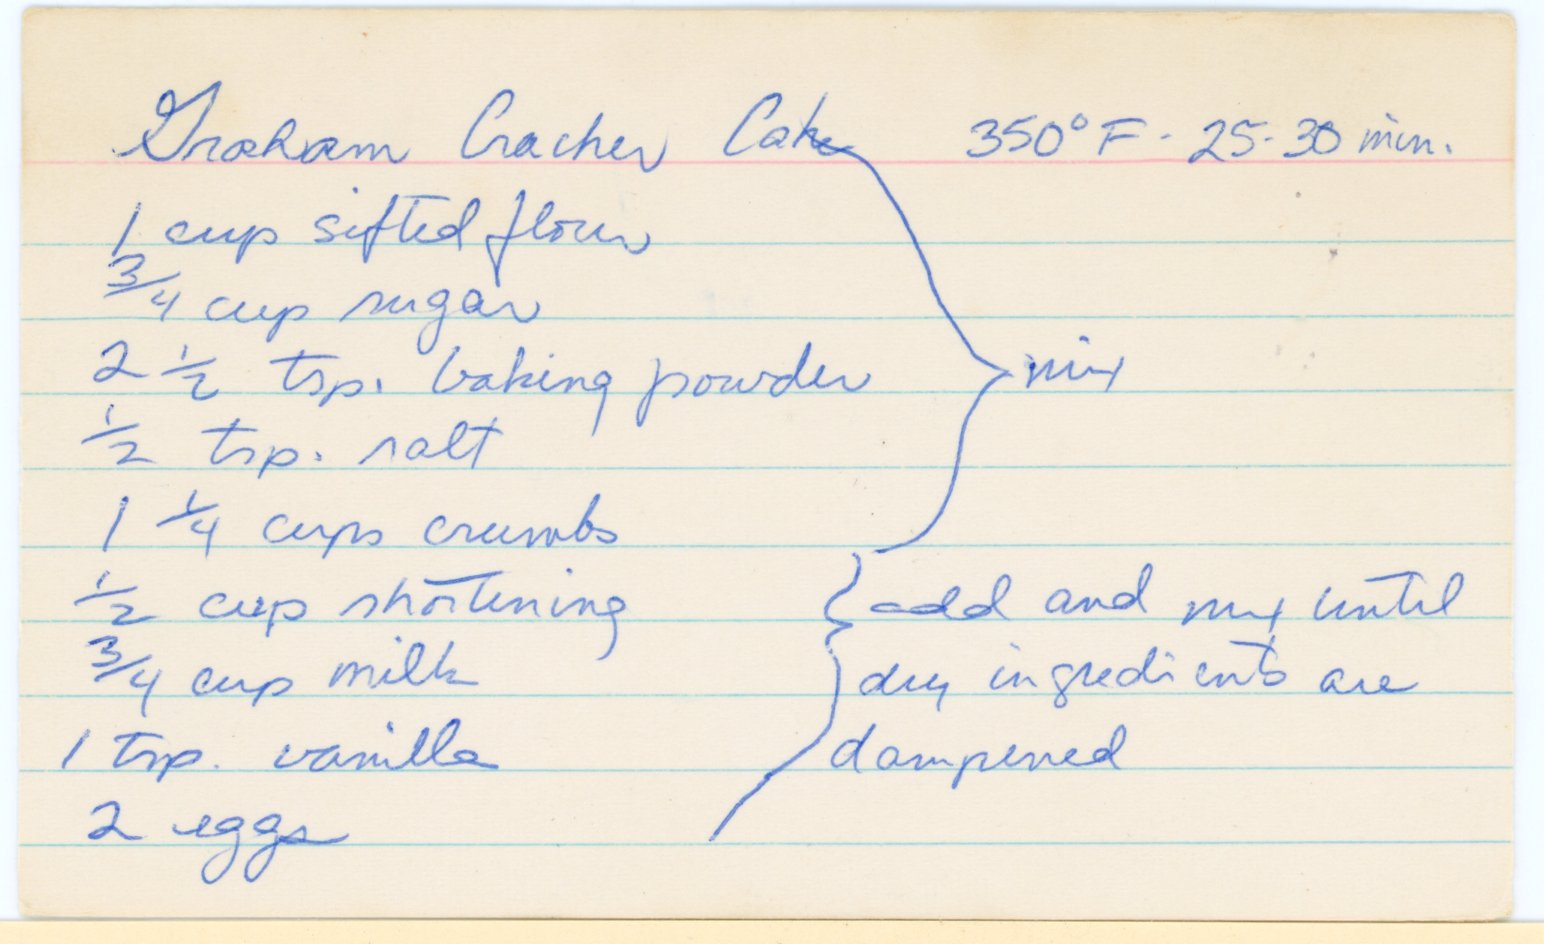 Graham Cracker Cake 350° F - 25-30 min.
1 cup sifted flour
3/4 cup sugar
2 1/2 tsp. baking powder
mix
1/2 tsp. salt
1 1/4 cups crumbs
1/2 cup shortening
add and mix until
3/4 cup milk
dry ingredients are
1 tsp. vanilla
dampened
2 eggs